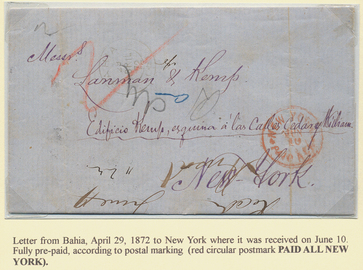 Messrs
Lanman & Kemp
Edificio Kemp, esquina á las Calles Cedar y William
New-York.
Letter from Bahia, April 29, 1872 to New York where it was received on June 10.
Fully pre-paid, according to postal marking (red circular postmark PAID ALL NEW
YORK).